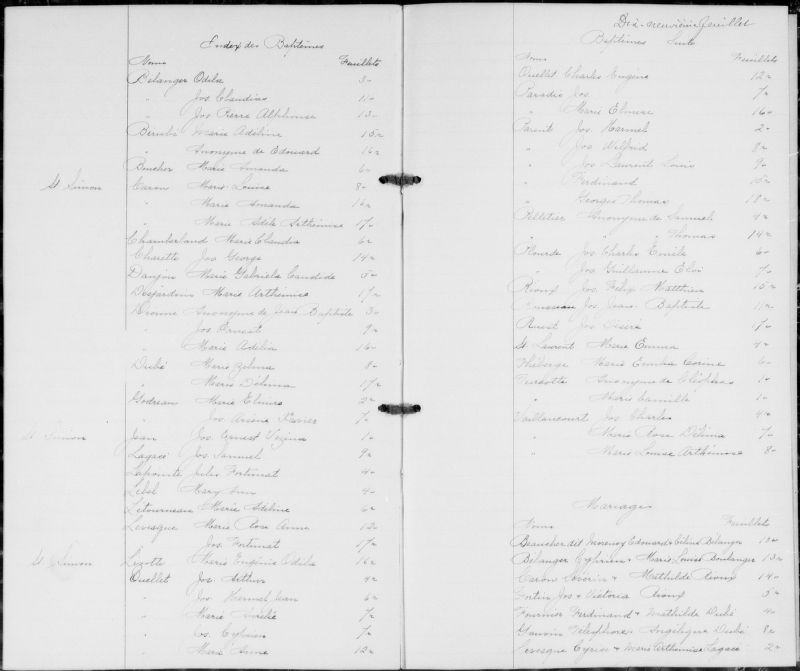 Index des Baptêmes
Noms Feuillets
Bélanger Odila 3
" Jos Claudias 11
" Jos Pierre Alphonse 13
Bérubé Marie Adéline 15
" Anonyme de Edouard 16
Boucher Marie Amanda 6
St Simon Caron Marie Louise 8
" Marie Amanda 16
" Marie Adèle Arthémise 17
Chamberland Marie Claudia 6
Charette Jos George 14
Danjou Marie Gabriela Candide 5
Desjardins Marie Arthémise 17
Drouin Anonyme de Jean Baptiste 3
" Jos Ernest 9
" Marie Adélia 16
Dubé Marie Zelma 8
" Marie Délima 17
Godreau Marie Elmire 2
" Jos Arsène Xavier 7
St Simon Jean Jos Ernest 1
Lagacé Jos Samuel 9
Lapointe Jules Fortunat 4
Lebel Mary Ann 4
Létourneau Marie Adéline 6
Levesque Marie Rose Anna 12
" Jos Fortunat 17
St Simon Lizotte Marie Eugénie Odila 16
Ouellet Jos Arthur 4
" Jos Jean 6
" Marie Aurélie 7
" Jos Cyprien 7
" Marie Anne 12
Dix-neuvième feuillet
Baptêmes Suite
Noms Feuillets
Ouellet Charles Eugène 12
Paradis Jos. 7
" Marie Elmire 16
Parent Jos Harmel 2
" Jos Wilfrid 8
" Jos Laurent Louis 9
" Ferdinand 15
" Georges Thomas 18
Pelletier Anonyme de Samuel 4
" " " Thomas 14
Plourde Jos Charles Emile 6
" Jos Guillaume Eloi 7
Rioux Jos Felix Matthieu 15
Rousseau Jos Jean-Baptiste 11
Ruest Jos Désiré 17
St Laurent Marie Emma 4
Théberge Marie Corine 6
Turcotte Anonyme de Cléophas 1
" Marie Camille 1
Vaillancourt Jos Charles 4
" Marie Rose Délima 7
" Marie Louise Arthémise 8
Mariages
Noms Feuillets
Beaucher dit Morency Edouard & Célina Bélanger 13
Bélanger Cyprien & Marie Louise Boulanger 13
Caron Sévérin & Mathilde Rioux 14
Fortin Jos & Victoria Rioux 5
Fournier Ferdinand & Mathilde Dubé 4
Gauvin Télesphore & Angélique Dubé 8
Levesque Cyrice & Marie Arthémise Lagacé 2